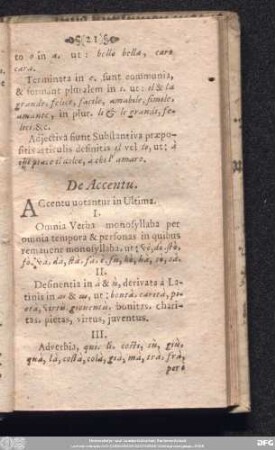 21
to o in a. ut: bello bella, caro
cara.
Terminata in e. sunt communia,
& formant pluralem in i. ut: il & la
grande, felice, facile, amabile, simile,
amante, in plur. li & le grandi, fe-
lici. &c.
Adjectiva fiunt Substantiva præpo-
sitis articulis definitis il vel lo, ut: à
piace il dolce, a chi l'amaro.
De Accentu.
ACcentu notantur in Ultima.
I.
Omnia Verba monosyllaba per
omnia tempora & personas in quibus
remanent monosyllaba. ut: dò, stò,
fò, dà, stà, fà, è, fù, hò, hà, sò, sà.
II.
Desinentia in à & ù, derivata à La-
tinis in as & us, ut: bontà, carità, pie-
tà, virtù, gioventù, bonitas, chari-
tas, pietas, virtus, juventus.
III.
Adverbia, qui, lì, così, sù, giù,
quà, là, costà, colà, già, mà, frà,
però